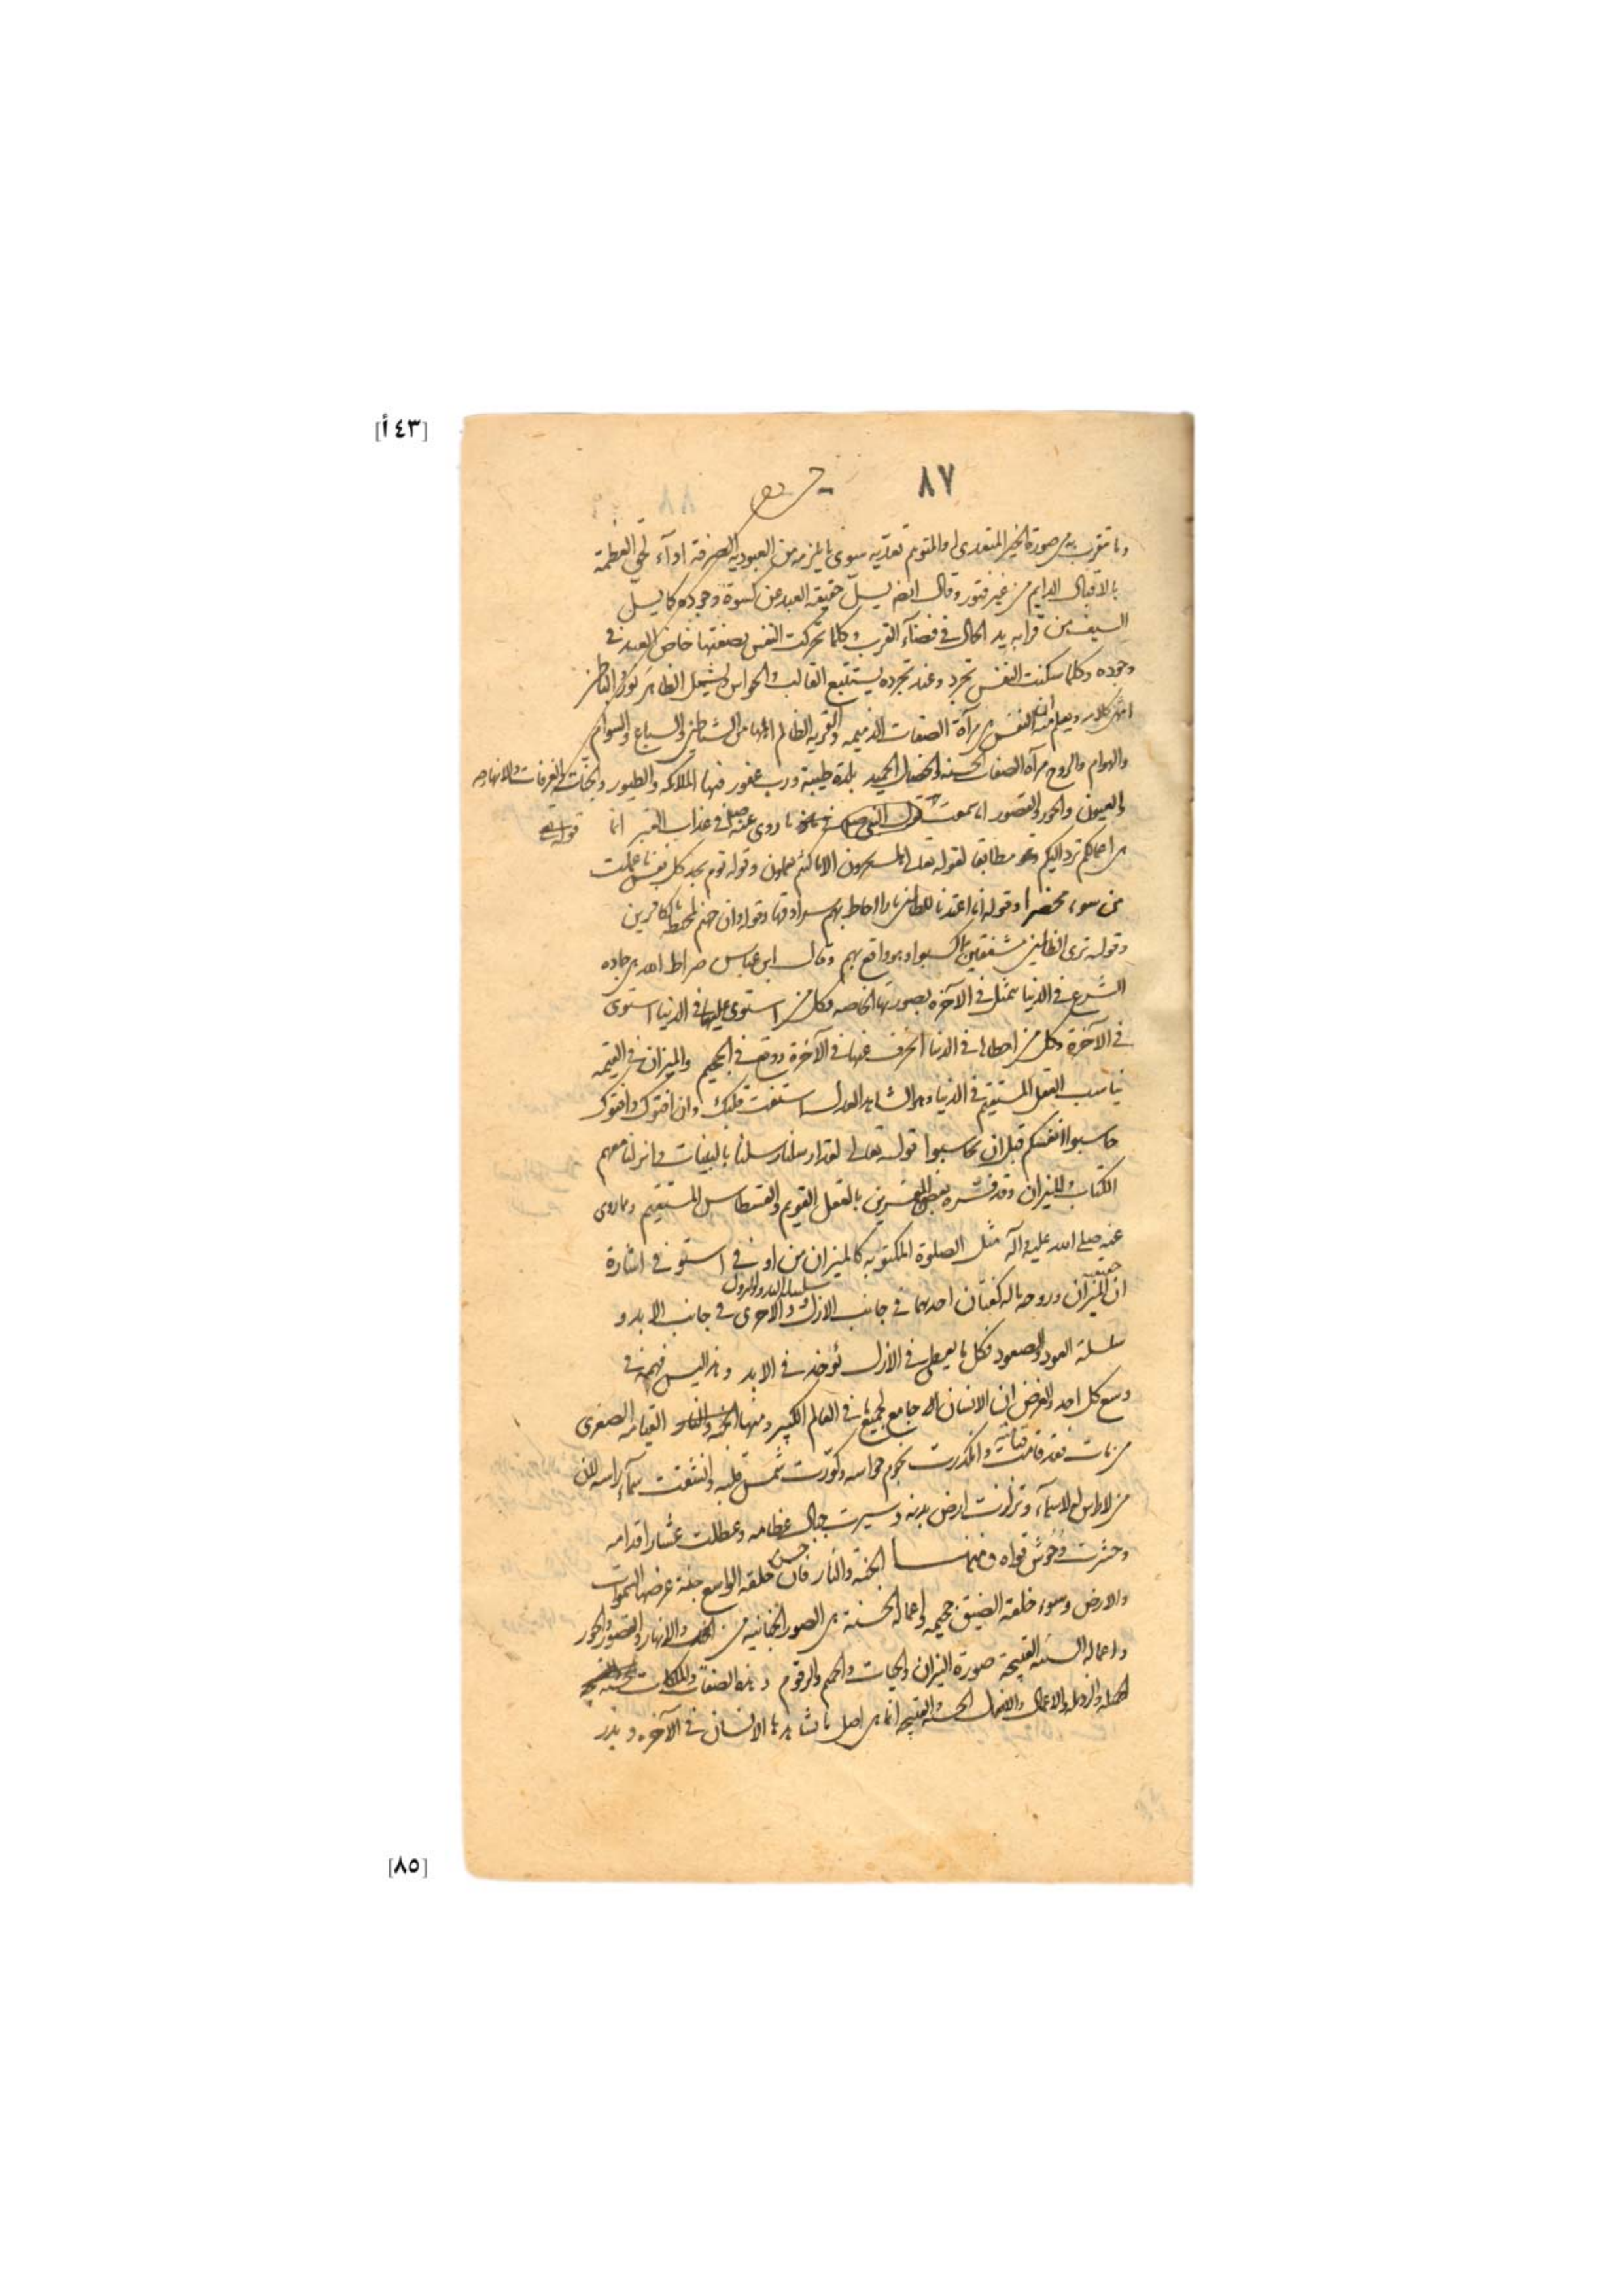 [٤٣ أ]
٨٧
وما تتقرب به من صورة الخير المتعدي او المتوهم تعديه سوى ما يلزمه من العبودية الصرفة اداء لحق العظمة
بالاقبال الدايم من غير فتور وقال ايضا يسل حقيقه العبد عن كسوة وجوده كما يسل
السيف من قرابه يد الحال في فضاء القرب وكلما تحركت النفس بصفتها خاض العبد في
وجوده وكلما سكنت النفس تجرد وعند تجرده يستتبع القالب والحواس ويشمل الظاهر نور الباطن
انتهى كلامه ويعلم منه ان النفس هي مرآة الصفات الذميمه والقرية الظالم اهلها من الشياطين والسباع والسوام
والهوام والروح مرآة الصفات الحسنه والخصال الحميد بلدة طيبة ورب غفور فيها الملائكه والطيور والجنات والغرفات والانهار
والعيون والحور والقصور اما سمعت ما روى عنه صلى في عذاب القبر انما
قوله تعالى
هي اعمالكم ترد اليكم وهو مطابقا لقوله تعالى ولا تجزون الا ما كنتم تعملون وقوله يوم تجد كل نفس ما عملت
من سوء محضرا وقوله انا اعتدنا للظالمين نارا احاط بهم سرادقها وقوله وان جهنم لمحيطة بالكافرين
وقوله ترى الظالمين مشفقين مما كسبوا وهو واقع بهم وقال ابن عباس صراط الله هي جاده
الشرع في الدنيا يتمثل في الآخره بصورتها الخاصه فكل من استوى عليها في الدنيا استوى
في الآخرة وكل من اخطاها في الدنيا انحرف عنها في الآخرة ووقع في الجحيم والميزان في القيمه
يناسب العقل المستقيم في الدنيا وهو الشاهد العدل استفت قلبك وان افتوك وافتوك
حاسبوا انفسكم قبل ان تحاسبوا قوله تعالى لقد ارسلنا رسلنا بالبينات وانزلنا معهم
الكتاب والميزان وقد فسره بعض المفسرين بالعقل القويم والقسطاس المستقيم وما روى
عنه صلى الله عليه وآله مثل الصلوة المكتوبه كالميزان من اوفى استوفى اشارة
ان حقيقه الميزان وروحه ماله كفتان احديهما في جانب الازل سلسله البدو والنزول والاخرى في جانب الابد و
سلسلة العود والصعود فكل ما يعطى في الازل يؤخذ في الابد وهذا ليس فهمه في
وسع كل احد والغرض ان الانسان جامع لجميع ما في العالم الكبير ومنها القيامه الصغرى
من مات فقد قامت قيامته وانكدرت نجوم حواسه وكورت شمس قلبه وانشقت سماء راسه لان
من لا راس له لا سماء له وتزلزلت ارض بدنه وسيرت جبال عظامه وعطلت عشار اقدامه
وحشرت وحوش قواه ومنها الجنة والنار فان حسن خلقه الواسع جنة عرضها السموات
والارض وسوء خلقه الضيق جحيمه واعماله الحسنة هي الصور الجنانيه من والانهار والقصور والحور
واعماله السيئه القبيحة صورة النيران والحيات والحميم والزقوم وهذه الصفات والملكات
والاعمال والافعال الحسنه والقبيحه انما هي اصل ما يشاهدها الانسان في الآخره وبذر
[٨٥]